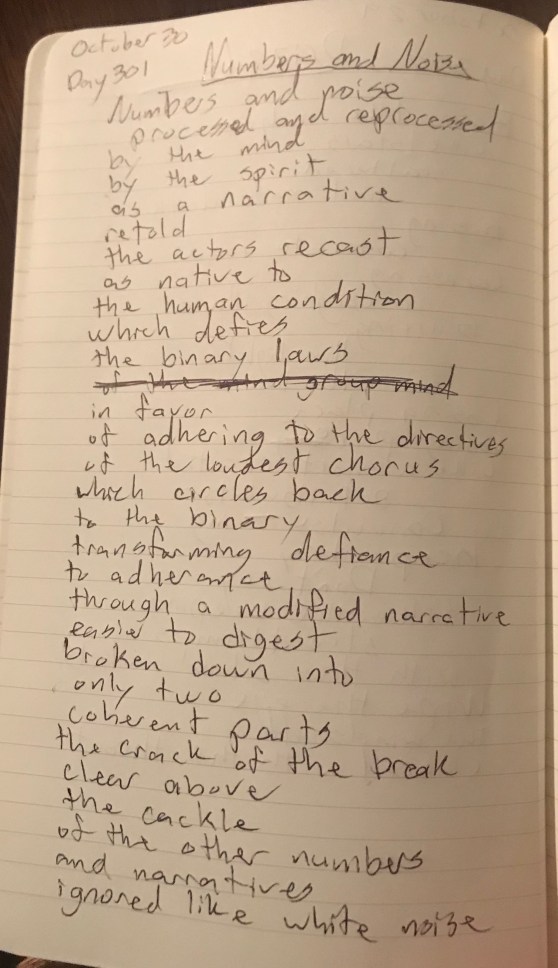 October 30
Day 301
Numbers and Noise
Numbers and noise
processed and reprocessed
by the mind
by the spirit
as a narrative
retold
the actors recast
as native to
the human condition
which defies
the binary laws
of the mind group mind
in favor
of adhering to the directives
of the loudest chorus
which circles back
to the binary
transforming defiance
to adherance
through a modified narrative
easier to digest
broken down into
only two
coherent parts
the crack of the break
clear above
the cackle
of the other numbers
and narratives
ignored like white noise